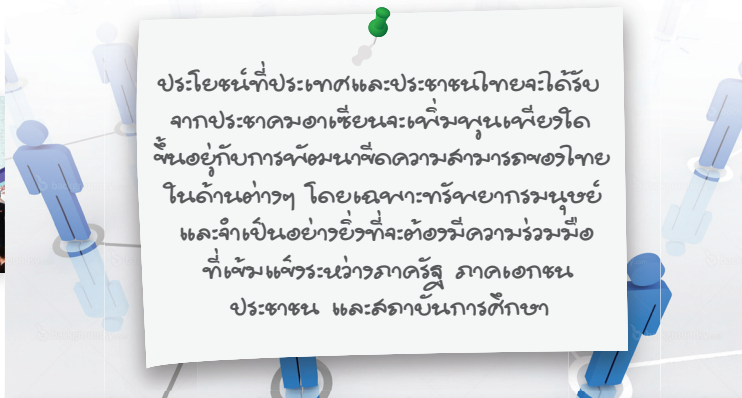 ประโยชน์ที่ประเทศและประชาชนไทยจะได้รับ
จากประชาคมอาเซียนจะเพิ่มพูนเพียงใด
ขึ้นอยู่กับการพัฒนาขีดความสามารถของไทย
ในด้านต่างๆ โดยเฉพาะทรัพยากรมนุษย์
และจำเป็นอย่างยิ่งที่จะต้องมีความร่วมมือ
ที่เข้มแข็งระหว่างภาครัฐ ภาคเอกชน
ประชาชน และสถาบันการศึกษา